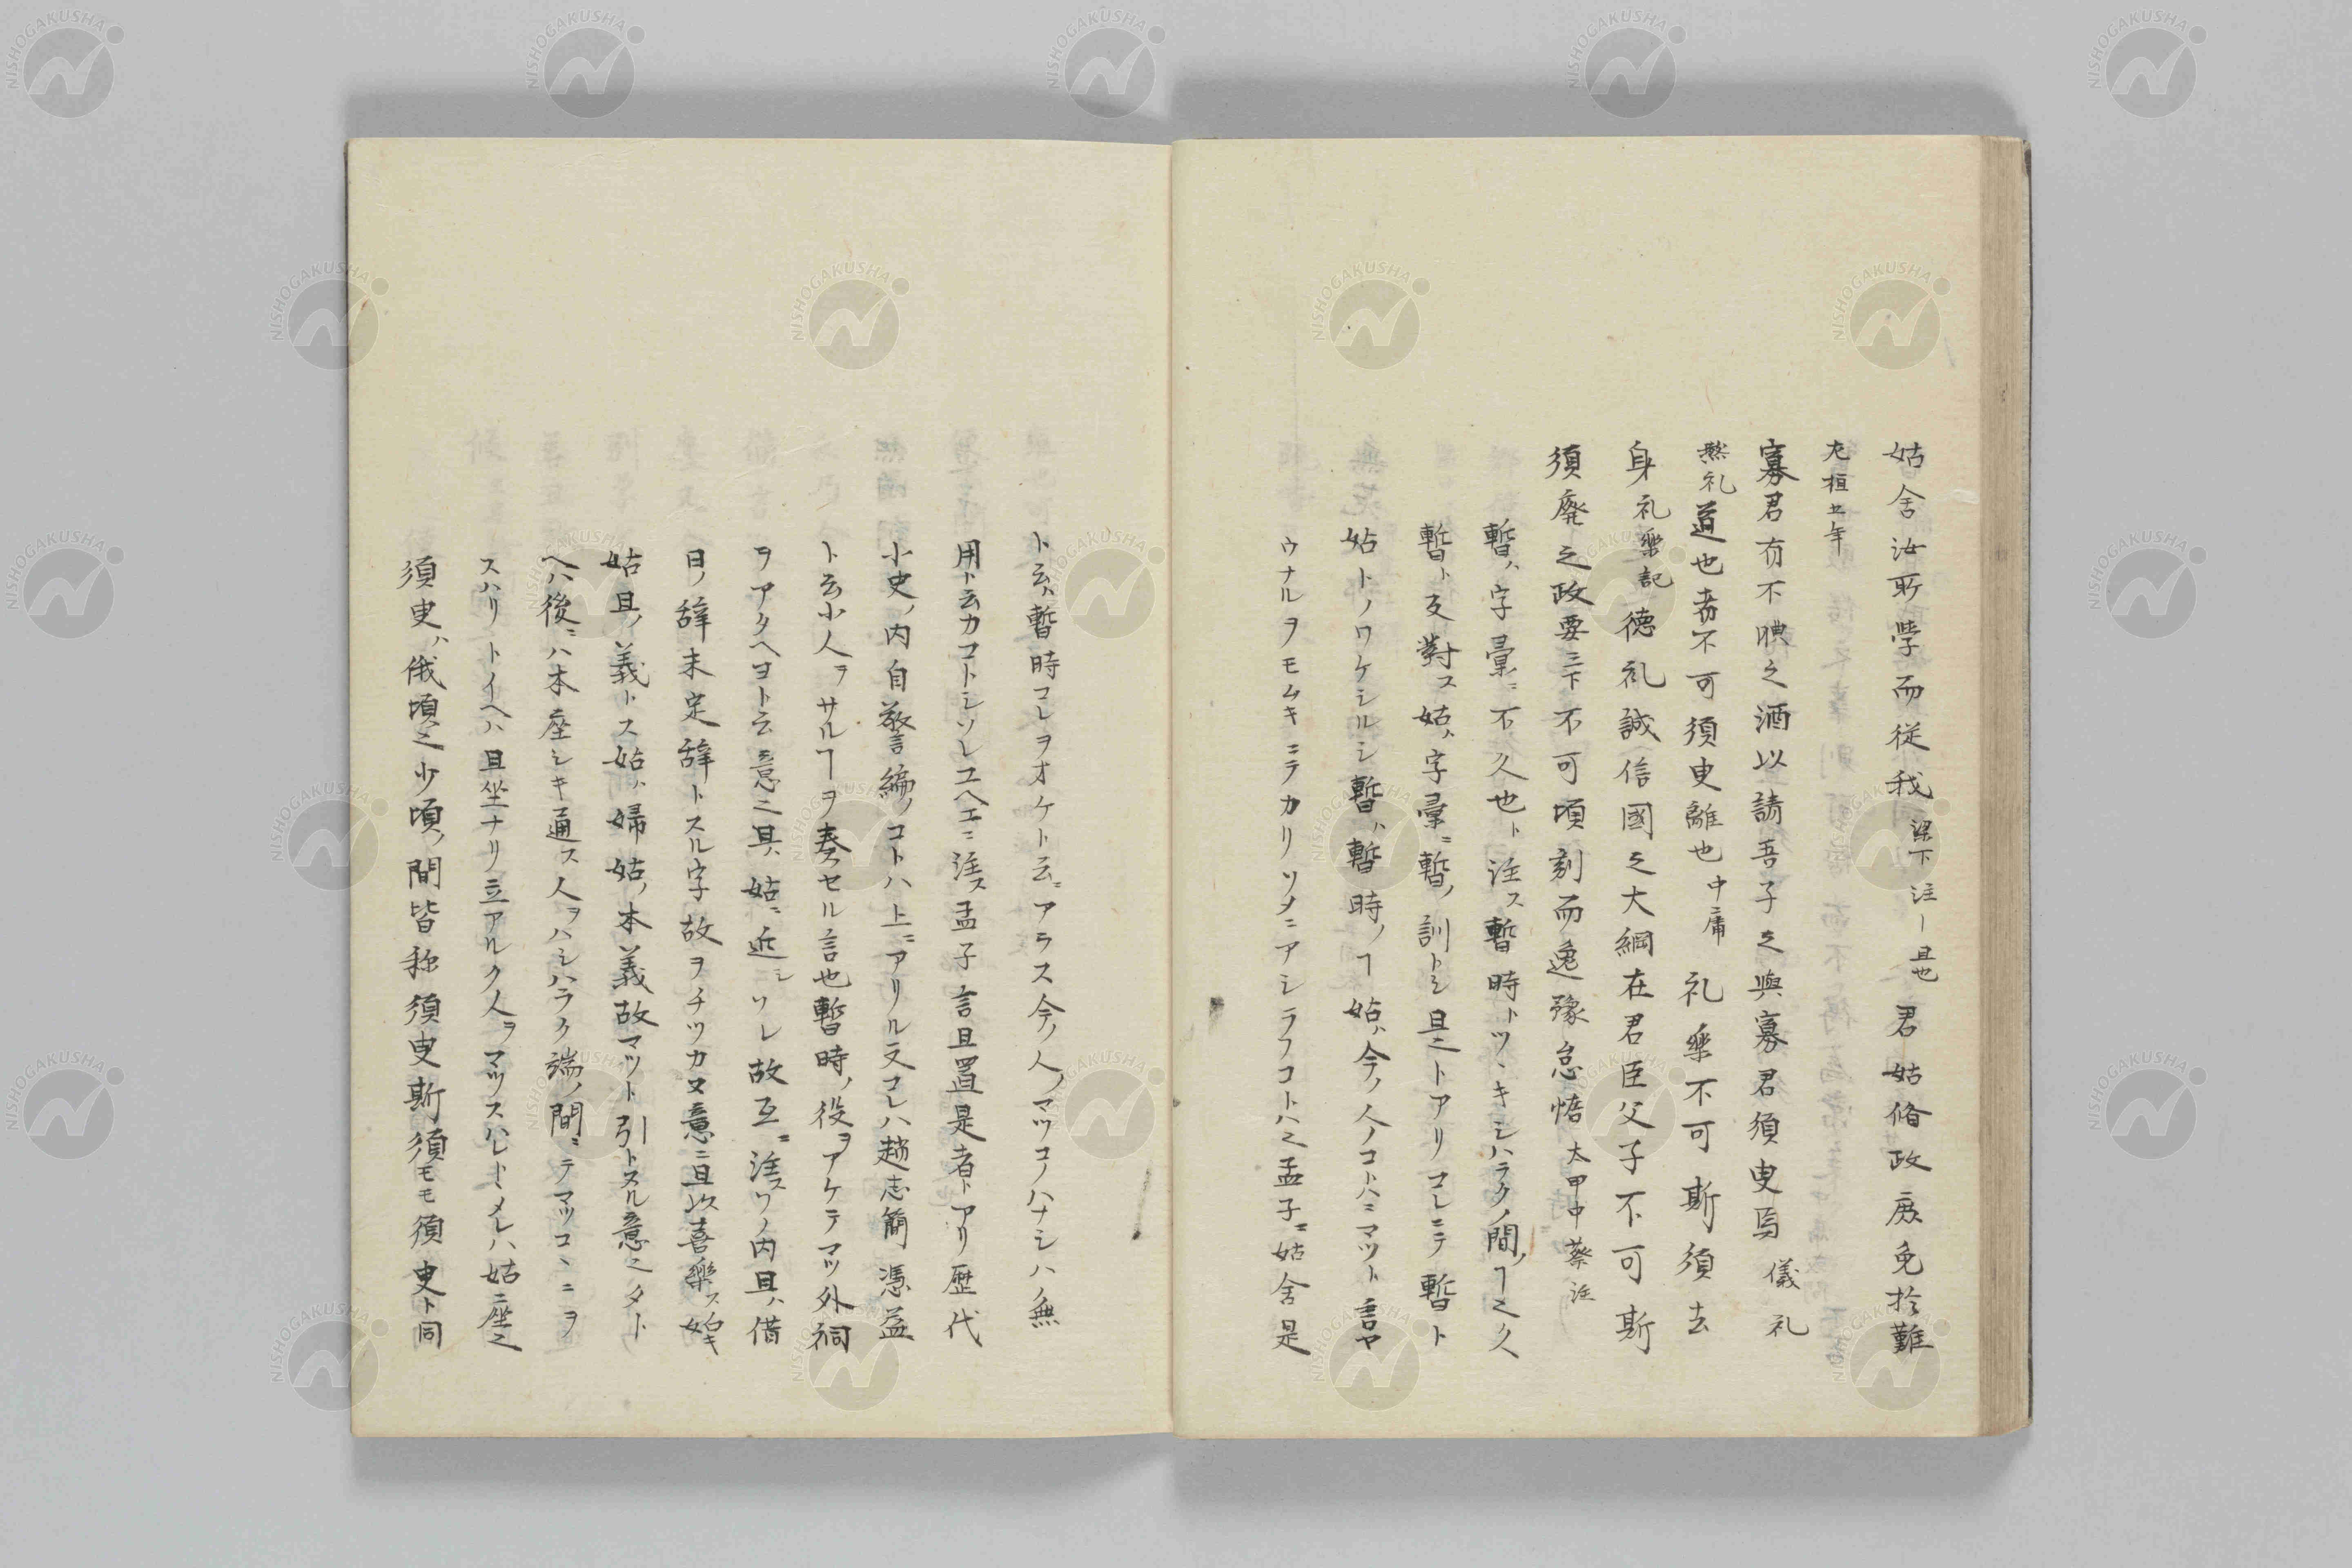 姑舍汝所學而從我 梁下 注｜且也 君姑脩政庶免於難
左桓六年
寡君有不腆之酒以請吾子之與寡君須臾焉 儀礼
燕礼 道也者不可須臾離也 中庸 礼樂不可斯須去
身 礼樂記 德礼誠信國之大綱在君臣父子不可斯
須廃之政要三下不可頃刻而逸豫怠惰 太甲中蔡注
暫ハ字彙ニ不久也ト注ス暫時トツヽキシハラクノ間ノヿ之久
暫ト反對ス姑ハ字彙ニ暫ノ訓トシ且之トアリコレニテ暫ト
姑トノワケシルシ暫ハ暫時ノヿ姑ハ今ノ人ノコトハニマツト言ヤ
ウナルヲモムキニテカリソメニアシラフコトハ之孟子ニ姑舍是
ト云ハ暫時コレヲオケト云ニアラス今ノ人ノマツコノハナシハ無
用ト云カコトシソレユヘエニ注ス孟子言且置是者トアリ歴代
小史ノ内自警編ノコトハ上ニアリル文コレハ趙志簡憑益
ト云小人ヲサルヿヲ奏セル言也暫時ノ役ヲアケテマツ外祠
ヲアタヘヨト云意之其ハ姑ニ近シソレ故互ニ注スソノ内且ハ借
曰ノ辞未定辞トスル字故ヲチツカヌ意ニ且以喜樂ス姑キ
姑且ノ義トス姑ハ婦姑ノ本義故マツト引トスル意之タト
ヘハ後ニハ本座シキ通ス人ヲハシハラク端ノ間ニテマツコヽニヲ
スハリトイヘハ且坐ナリ立アルク人ヲマツスハレトメレハ姑ニ座之
須臾ハ俄頃之少頃ノ間皆称須臾斯須モモ須臾ト同
NISHOGAKUSHA